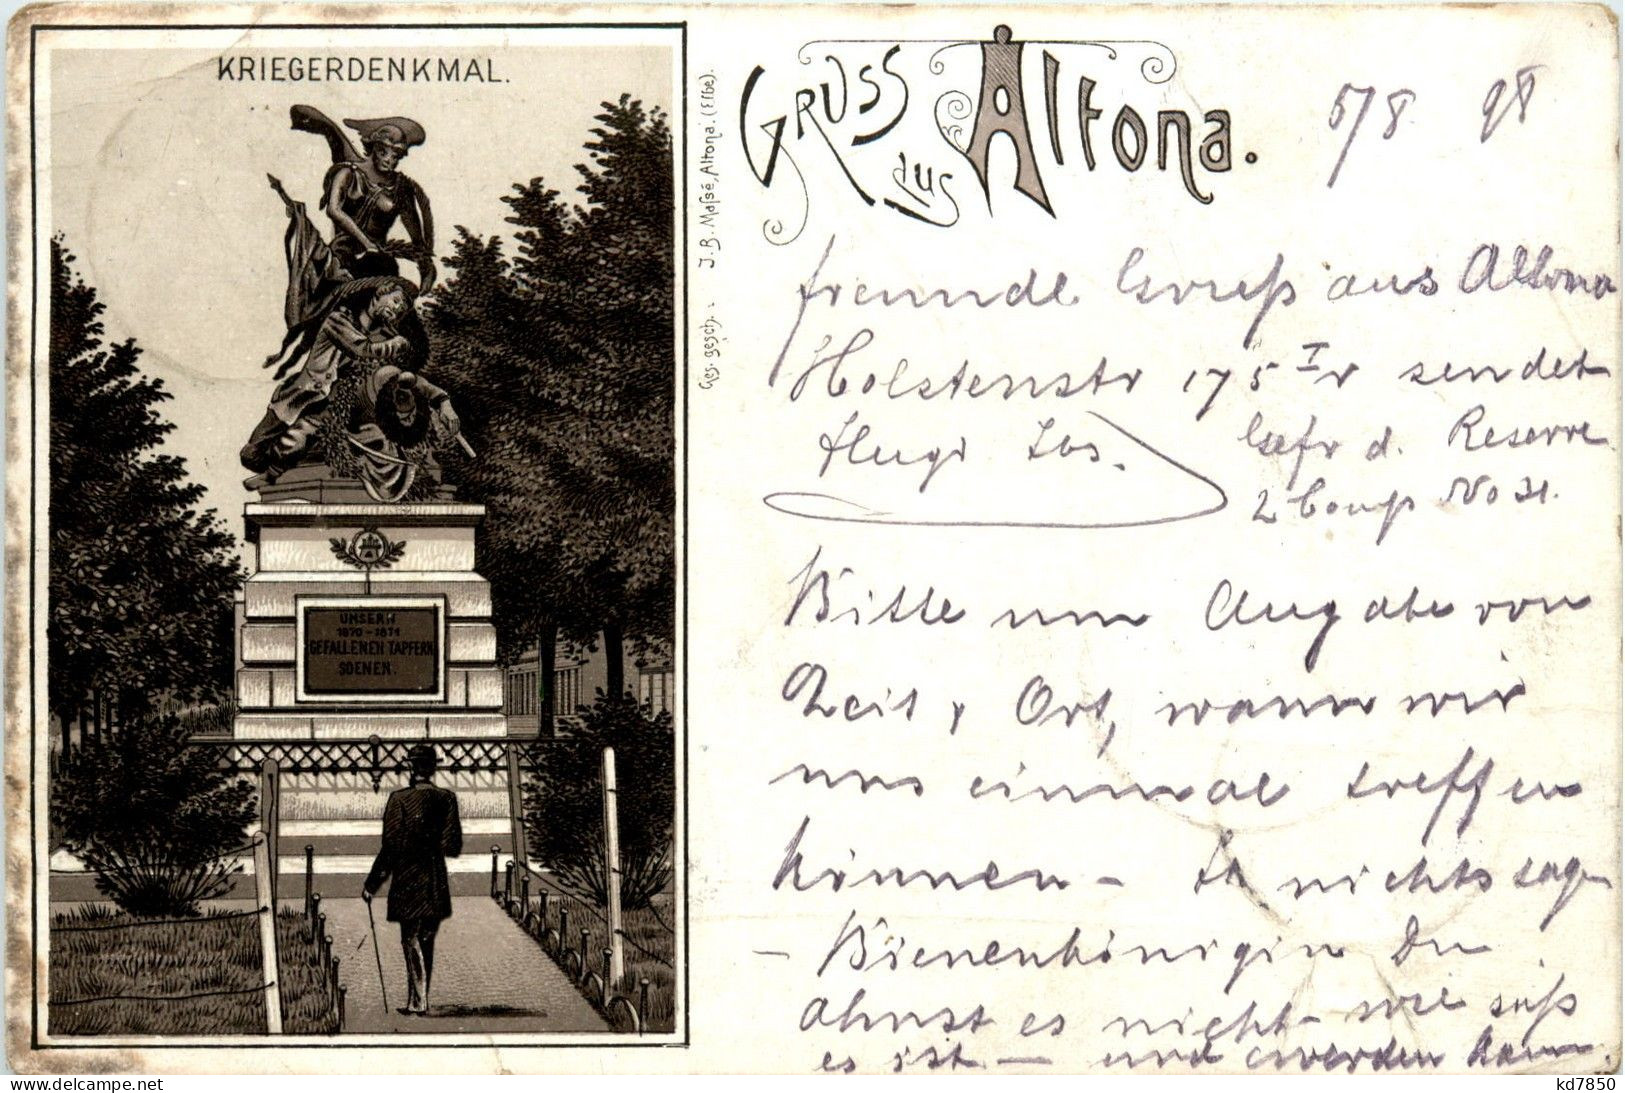 KRIEGERDENKMAL.
UNSERN
1870-1871
GEFALLENEN TAPFERN
SOENEN.
Ges. gesch. J. B. Masse, Altona. (Erbe).
GRUSS
aus Altona.
5/8 98
freundl Gruß aus Altona
Holstenstr 175 I r sendet
Gefr d. Reserve
2 Comp No 31.
Bitte um Angabe von
Zeit & Ort, wann wir
uns einmal treffen
können - nichts sagen
- Bienenkönigin Du
ahnst es nicht - wie süß
es ist - und werden kann.
kd7850